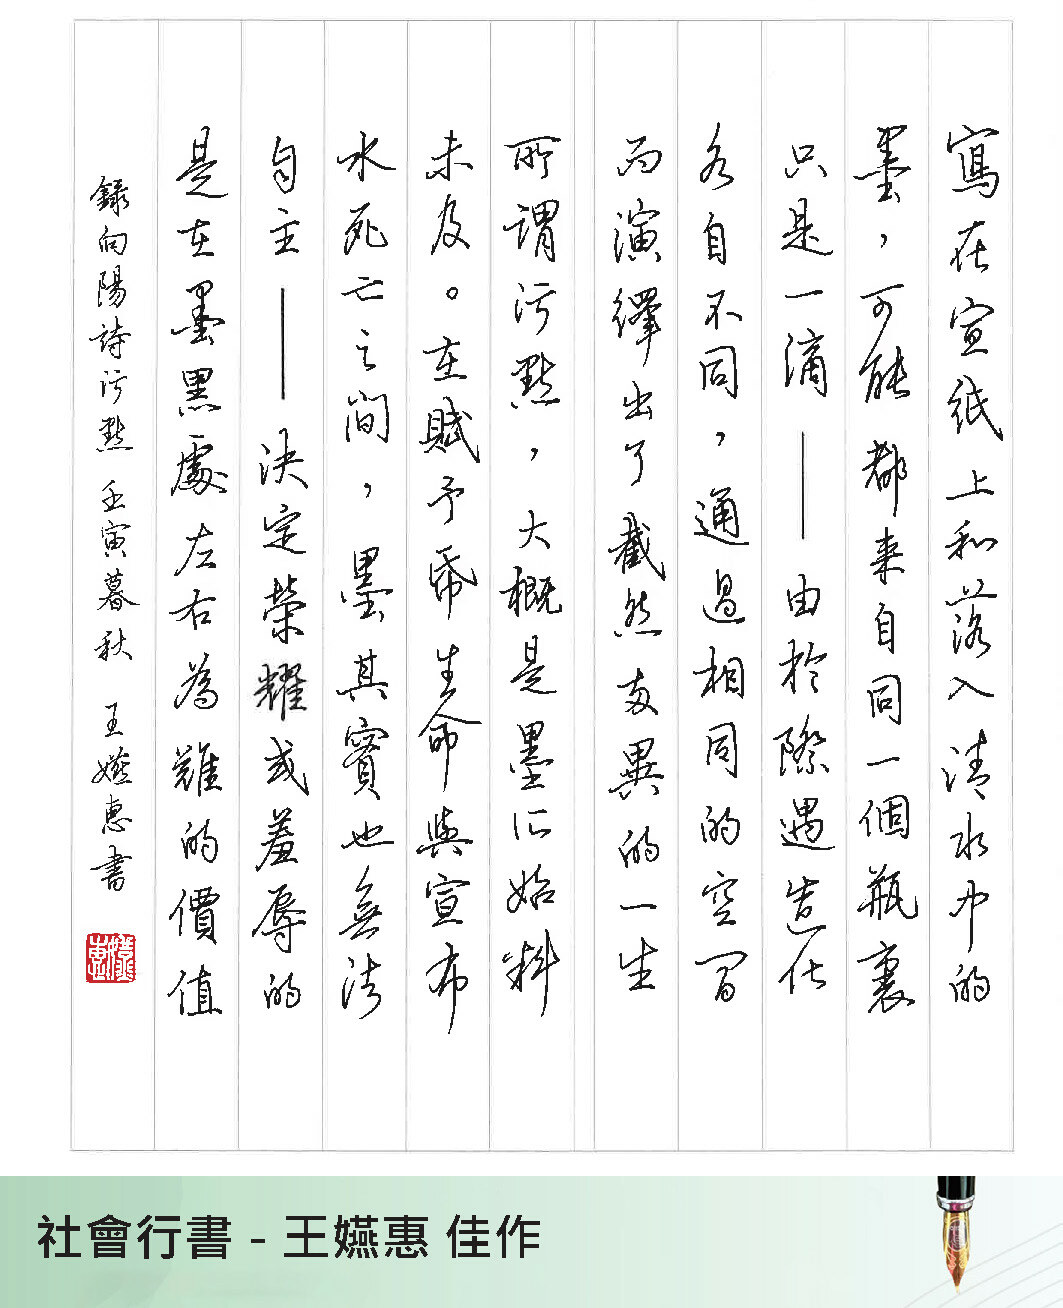 寫在宣紙上和落入清水中的
墨，可能都來自同一個瓶裏
只是一滴——由於際遇造化
各自不同，通過相同的空間
而演繹出了截然互異的一生
所謂污點，大概是墨汁始料
未及。在賦予紙生命與宣布
水死亡之間，墨其實也無法
自主——決定榮耀或羞辱的
是在墨黑處左右為難的價值
錄向陽詩污點 壬寅暮秋 王嬿惠書
社會行書 - 王嬿惠 佳作